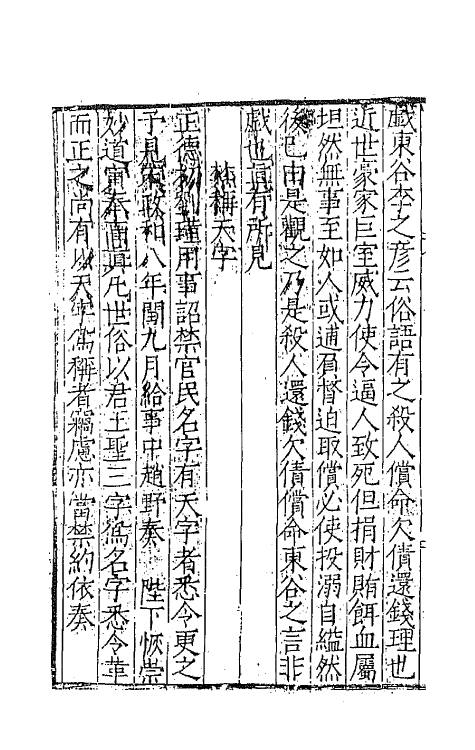 戯東谷李之彦云俗語有之殺人償命欠債還錢理也
近世豪家巨室威力使令逼人致死但捐財賄餌血屬
坦然無事至如人或逋負督迫取償必使投溺自縊然
後已由是觀之乃是殺人還錢欠債償命東谷之言非
戯也真有所見
禁稱天字
正德初劉瑾用事詔禁官民名字有天字者悉令更之
予見宋政和八年閏九月給事中趙野奏 陛下恢崇
妙道寅奉高真凡世俗以君王聖三字為名字悉令革
而正之尚有以天字為稱者竊慮亦當禁約依奏